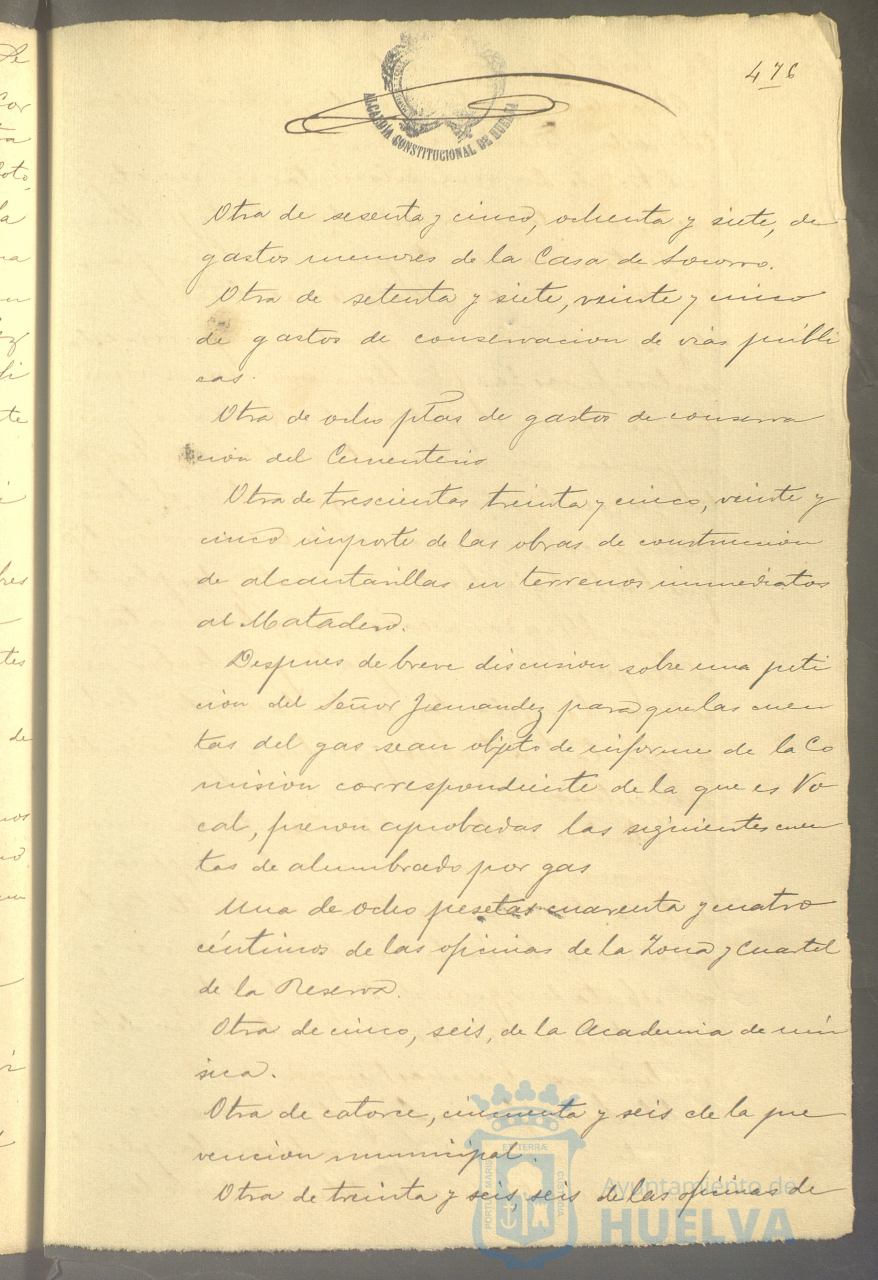 476
ALCALDIA CONSTITUCIONAL DE HUELVA
Otra de sesenta y cinco, ochenta y siete, de
gastos menores de la Casa de Socorro.
Otra de setenta y siete, veinte y cinco
de gastos de conservacion de vias públi
cas.
Otra de ocho ptas de gastos de conserva
cion del Cementerio
Otra de trescientas treinta y cinco, veinte y
cinco importe de las obras de construccion
de alcantarillas en terrenos inmediatos
al Matadero.
Despues de breve discusion sobre una peti
cion del Señor Hernandez para que las cuen
tas del gas sean objeto de informe de la Co
mision correspondiente de la que es Vo
cal, fueron aprobadas las siguientes cuen
tas de alumbrado por gas
Una de ocho pesetas cuarenta y cuatro
céntimos de las oficinas de la Zona y Cuartel
de la Reserva.
Otra de cinco, seis, de la Academia de mú
sica.
Otra de catorce, cincuenta y seis de la pre
vencion municipal.
Otra de treinta y seis, seis de las oficinas de
PORTUS MARIS ET TERRÆ CUSTODIA
Ayuntamiento de
HUELVA